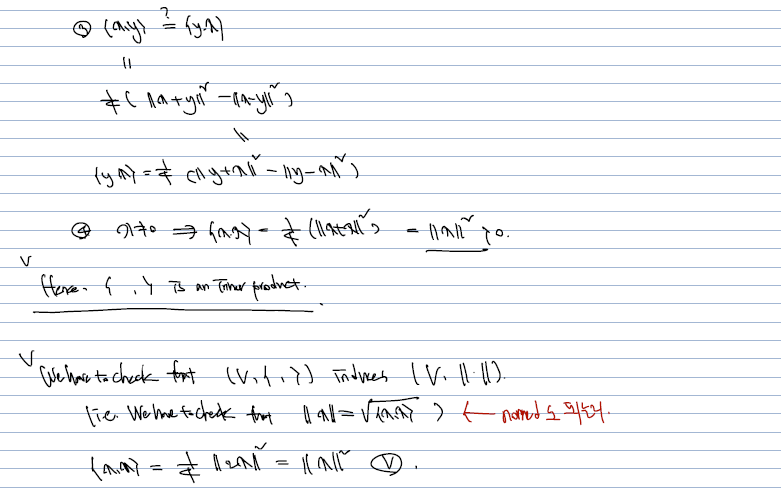 ③ ⟨x,y⟩ ?= ⟨y,x⟩
||
1/4 ( ||x+y||² - ||x-y||² )
||
⟨y,x⟩ = 1/4 ( ||y+x||² - ||y-x||² )
④ x≠0 ⇒ ⟨x,x⟩ = 1/4 (||x+x||²) = ||x||² > 0.
∨
Hence. ⟨ , ⟩ is an inner product.
∨ We have to check that (V, ⟨ , ⟩) induces (V, ||·||).
(i.e. We have to check that ||x|| = √⟨x,x⟩ ) ← normed도 되는지.
⟨x,x⟩ = 1/4 ||2x||² = ||x||² Ⓥ.